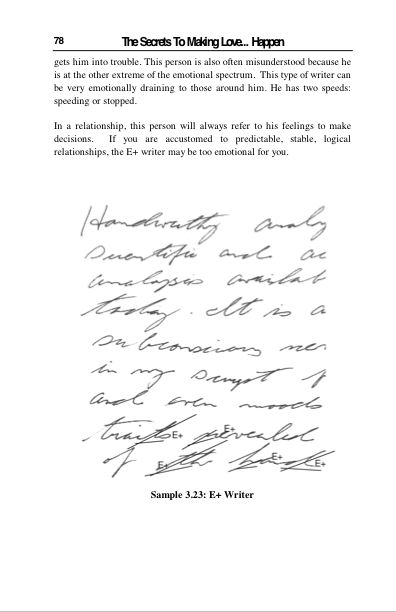 78 The Secrets To Making Love... Happen
gets him into trouble. This person is also often misunderstood because he
is at the other extreme of the emotional spectrum. This type of writer can
be very emotionally draining to those around him. He has two speeds:
speeding or stopped.
In a relationship, this person will always refer to his feelings to make
decisions. If you are accustomed to predictable, stable, logical
relationships, the E+ writer may be too emotional for you.
analy
Scientific and ac
analysis availab
today. It is a
subconscious
in my script
and even moods
traits E+ E+ revealed
of E+ the E+ E+
Sample 3.23: E+ Writer